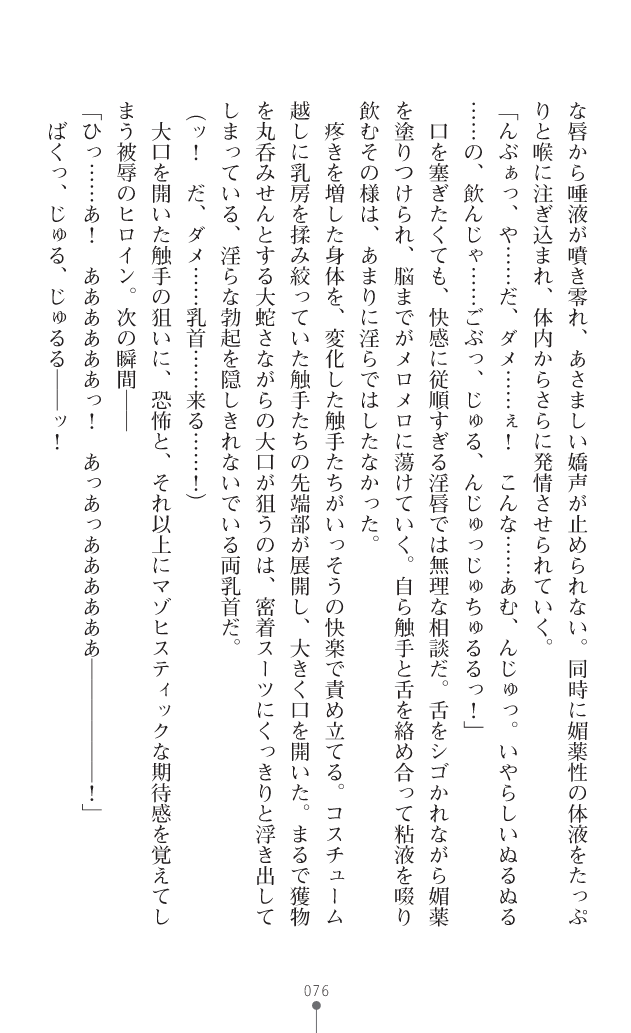 な唇から唾液が噴き零れ、あさましい嬌声が止められない。同時に媚薬性の体液をたっぷ
りと喉に注ぎ込まれ、体内からさらに発情させられていく。
「んぶぁっ、や……だ、ダメ……ぇ！　こんな……あむ、んじゅっ。いやらしいぬるぬる
……の、飲んじゃ……ごぶっ、じゅる、んじゅっじゅちゅるるっ！」
　口を塞ぎたくても、快感に従順すぎる淫唇では無理な相談だ。舌をシゴかれながら媚薬
を塗りつけられ、脳までがメロメロに蕩けていく。自ら触手と舌を絡め合って粘液を啜り
飲むその様は、あまりに淫らではしたなかった。
　疼きを増した身体を、変化した触手たちがいっそうの快楽で責め立てる。コスチューム
越しに乳房を揉み絞っていた触手たちの先端部が展開し、大きく口を開いた。まるで獲物
を丸呑みせんとする大蛇さながらの大口が狙うのは、密着スーツにくっきりと浮き出して
しまっている、淫らな勃起を隠しきれないでいる両乳首だ。
（ッ！　だ、ダメ……乳首……来る……！）
　大口を開いた触手の狙いに、恐怖と、それ以上にマゾヒスティックな期待感を覚えてし
まう被辱のヒロイン。次の瞬間――
「ひっ……あ！　ああああああっ！　あっあっああああああ――――――！」
　ばくっ、じゅる、じゅるる――ッ！
076